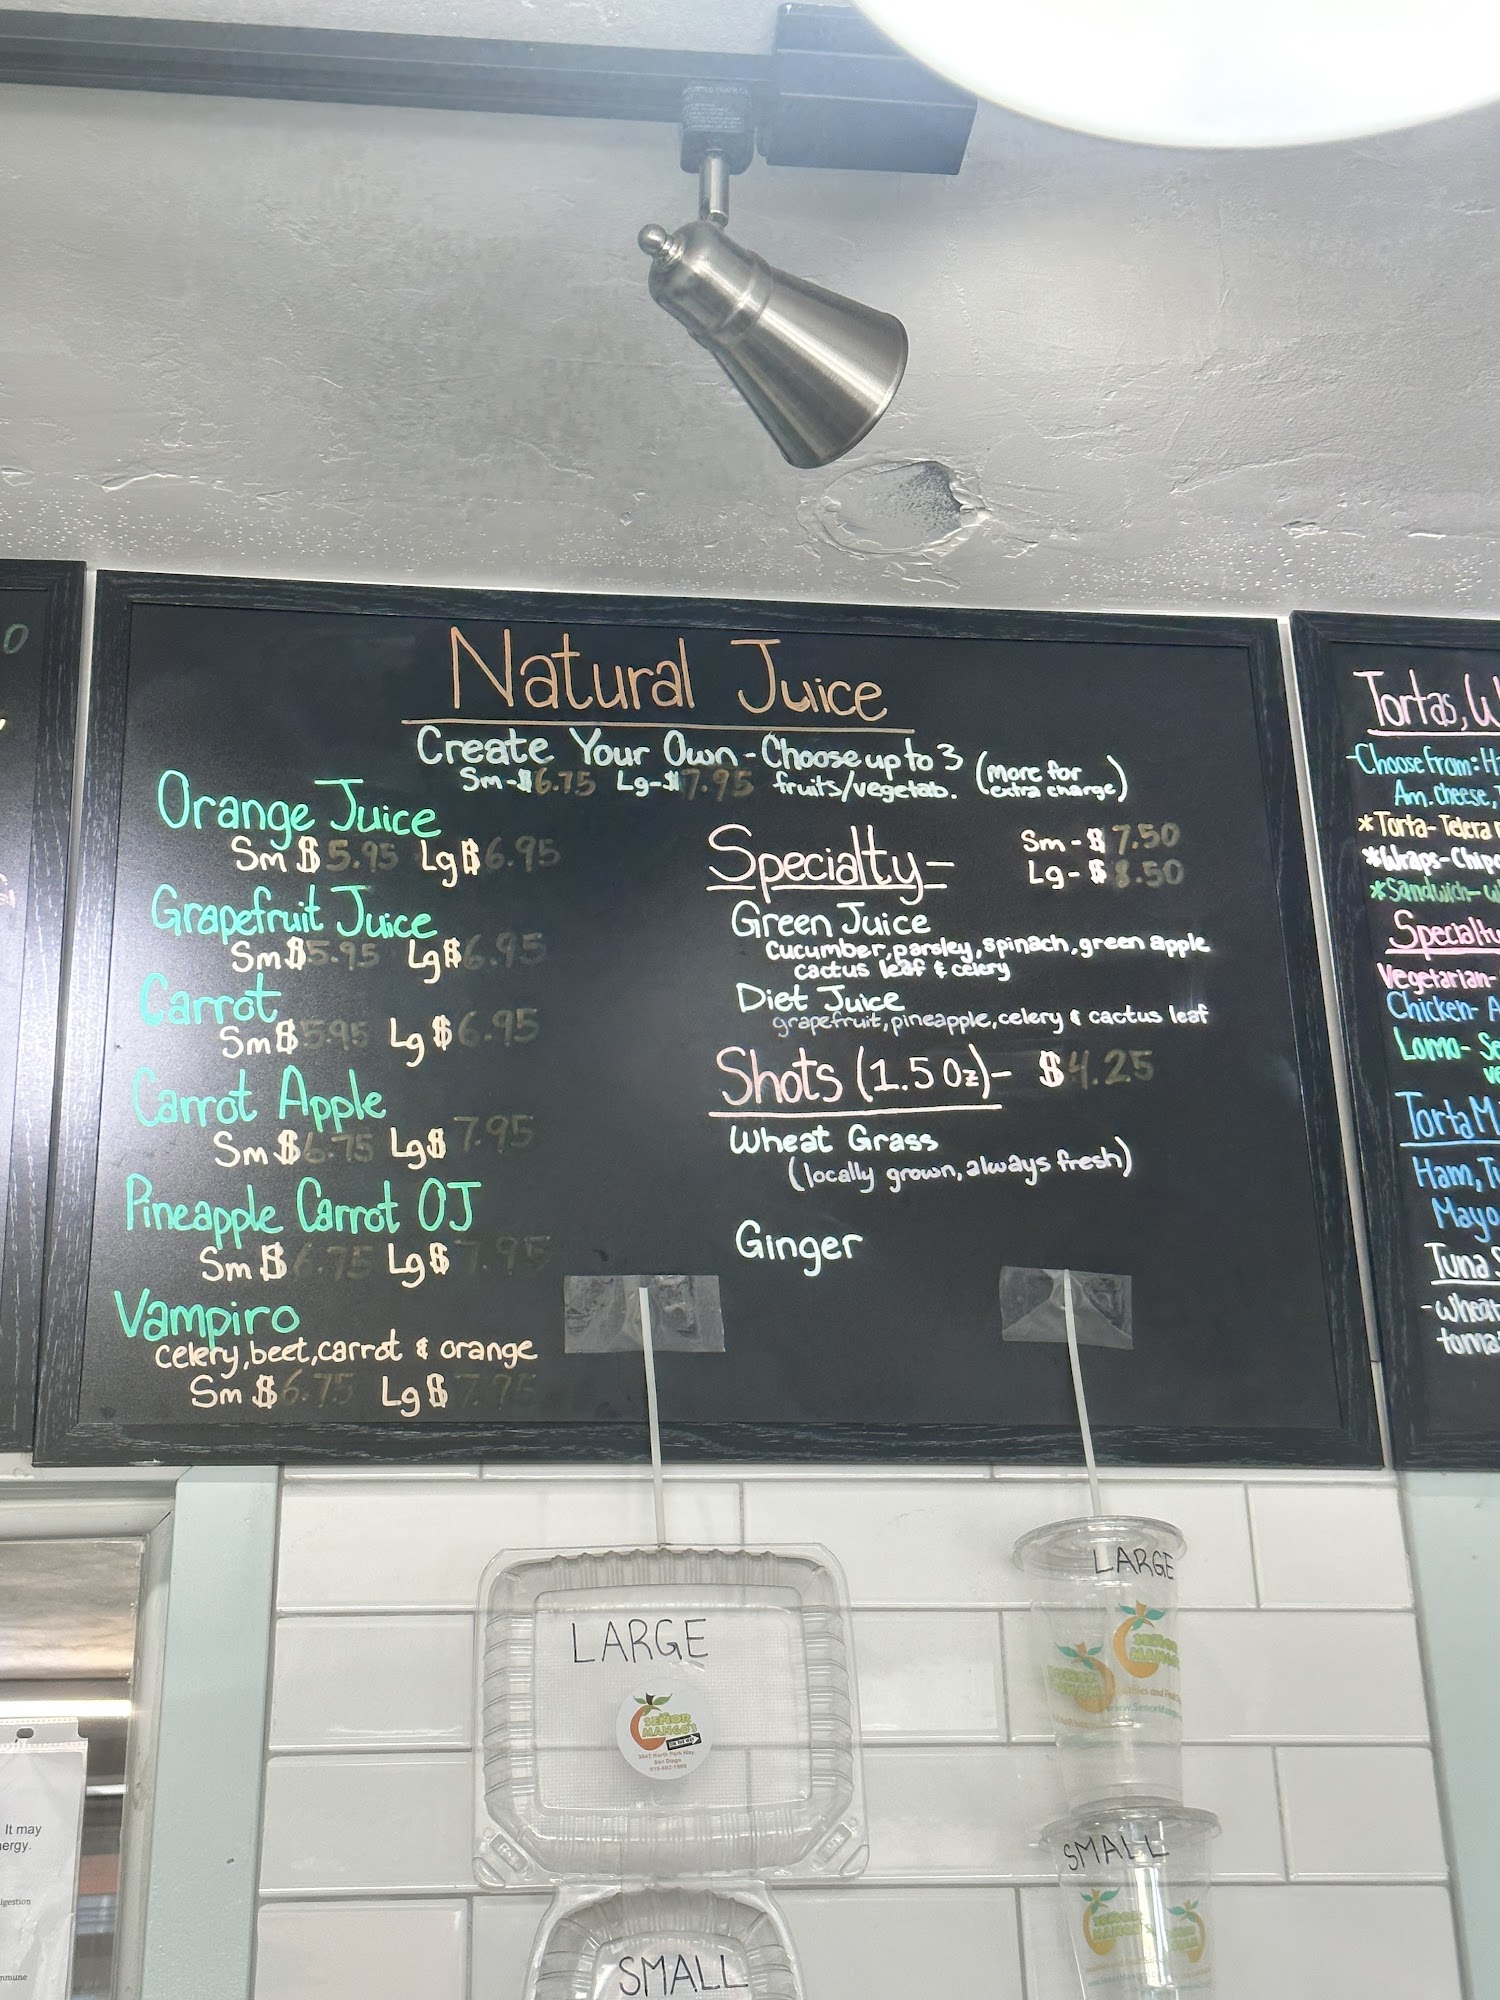 Natural Juice
Create Your Own - Choose up to 3 (more for
Sm-$6.75 Lg-$7.95 fruits/vegetab. extra charge)
Orange Juice
Sm $5.95 Lg $6.95
Grapefruit Juice
Sm $5.95 Lg $6.95
Carrot
Sm $5.95 Lg $6.95
Carrot Apple
Sm $6.75 Lg $7.95
Pineapple Carrot OJ
Sm $6.75 Lg $7.95
Vampiro
celery, beet, carrot & orange
Sm $6.75 Lg $7.95
Specialty- Sm - $7.50
Lg - $8.50
Green Juice
cucumber, parsley, spinach, green apple
cactus leaf & celery
Diet Juice
grapefruit, pineapple, celery & cactus leaf
Shots (1.5 Oz)- $4.25
Wheat Grass
(locally grown, always fresh)
Ginger
Tortas,
-Choose from:
Am. cheese,
*Torta- Telera
*Wraps-
*Sandwich-
Specialty
Vegetarian-
Chicken-
Lomo-
Torta
Ham,
Mayo
Tuna
-Wheat
LARGE
SEÑOR
MANGO'S
3947 North Park Way,
San Diego
LARGE
SEÑOR
MANGO
SMALL
SMALL
It may